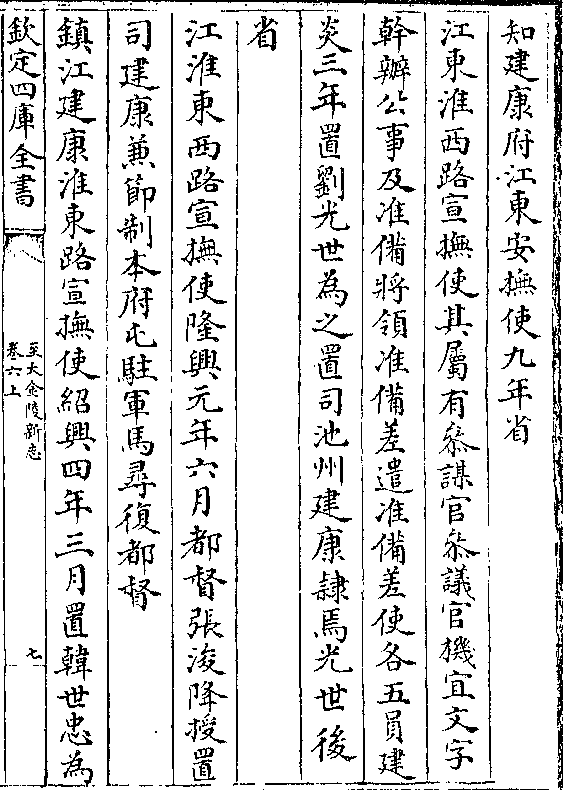 知建康府江東安撫使九年省
江東淮西路宣撫使其屬有叅謀官叅議官機宜文字
幹辦公事及准備將領准備差遣准備差使各五員建
炎三年置劉光世為之置司池州建康隷焉光世後
省
江淮東西路宣撫使隆興元年六月都督張浚降授置
司建康兼節制本府屯駐軍馬尋復都督
鎮江建康淮東路宣撫使紹興四年三月置韓世忠為
欽定四庫全書
至大金陵新志
卷六上
七